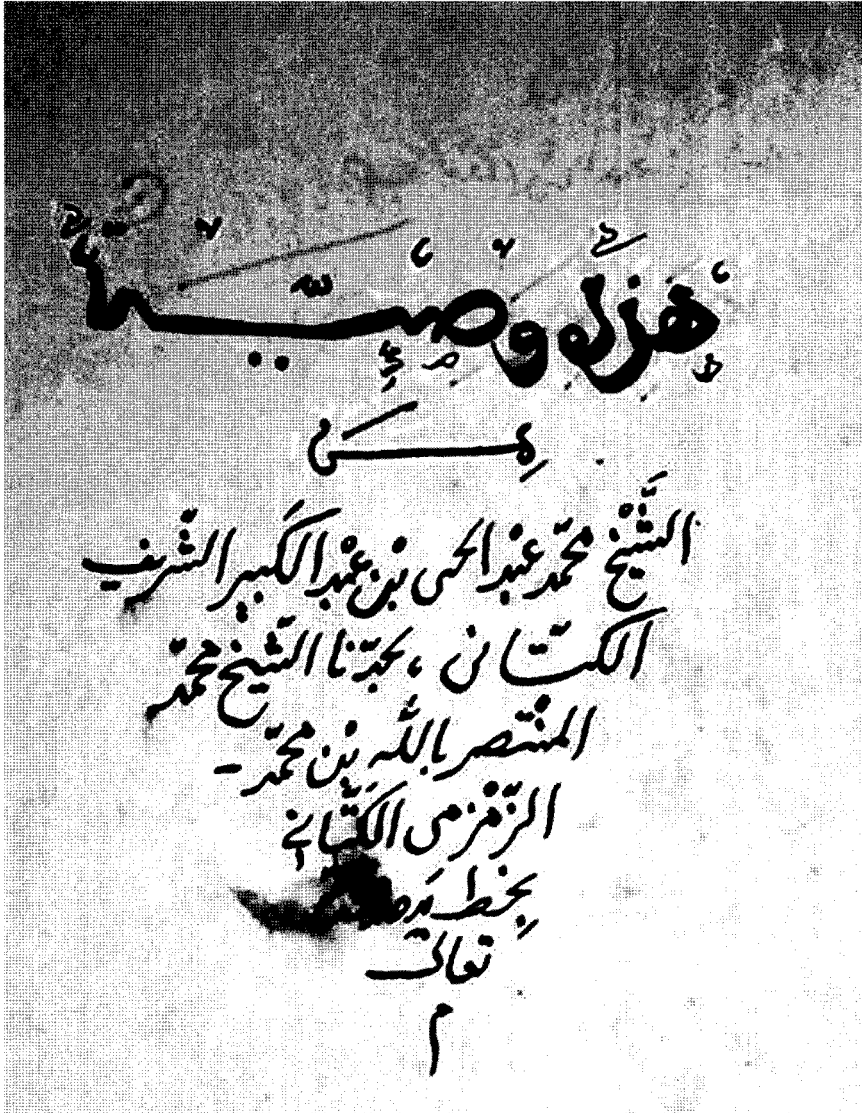 هذه وصية
من
الشَّيْخ محمّد عبْد الحي بْن عبْد الكَبير الشّريف
الكتّاني، لجدّنا الشّيخ محمّد
المنْتصر باللّه بْن محمّد -
الزّمْزمي الكِتّاني
بِخط يَده
تعالى
م